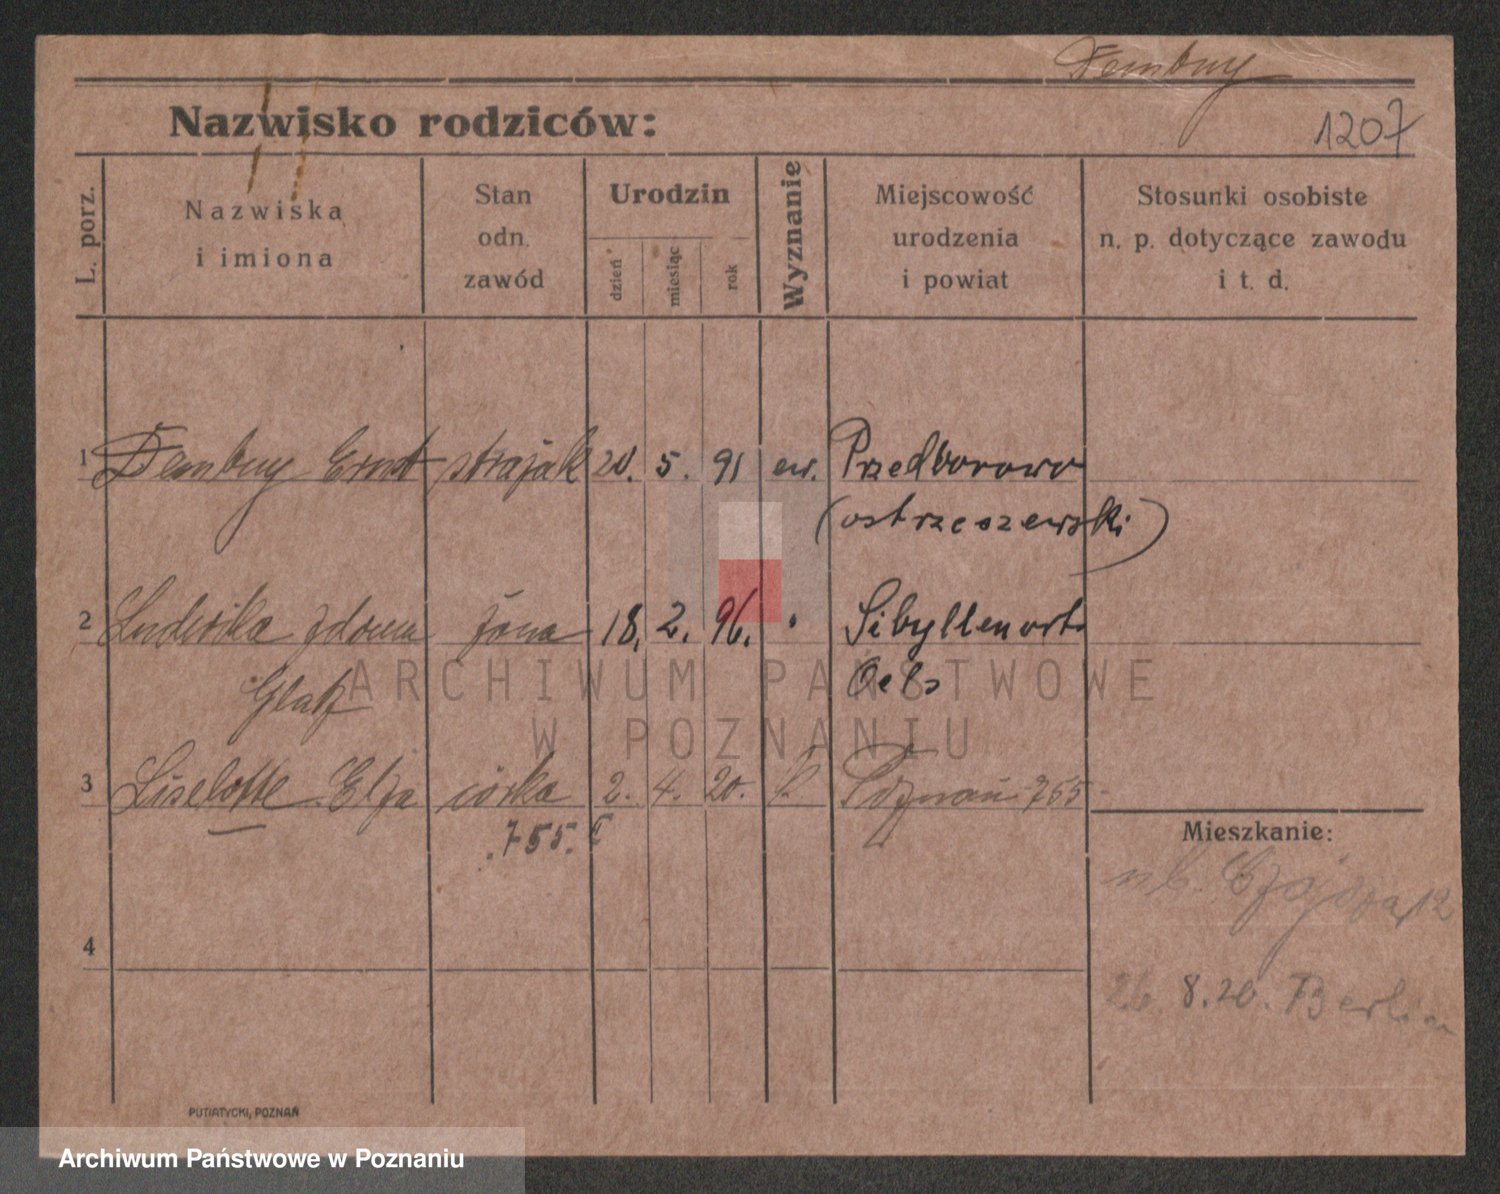 Dembny
Nazwisko rodziców:
1207
L. porz.
Nazwiska
i imiona
Stan
odn.
zawód
Urodzin
dzień
miesiąc
rok
Wyznanie
Miejscowość
urodzenia
i powiat
Stosunki osobiste
n. p. dotyczące zawodu
i t. d.
1 Dembny Ernst strażak 20. 5. 91 ew. Przedborowo
(ostrzeszewski)
2 Ludwika zdomu żona 18. 2. 96. " Sibyllenort
Glatz Oels
3 Liselotte Elza córka 2. 4. 20. k. Poznań 755
755. II
Mieszkanie:
12
4
26. 8. 20. Berlin
PUTIATYCKI, POZNAŃ
ARCHIWUM PAŃSTWOWE
W POZNANIU
Archiwum Państwowe w Poznaniu